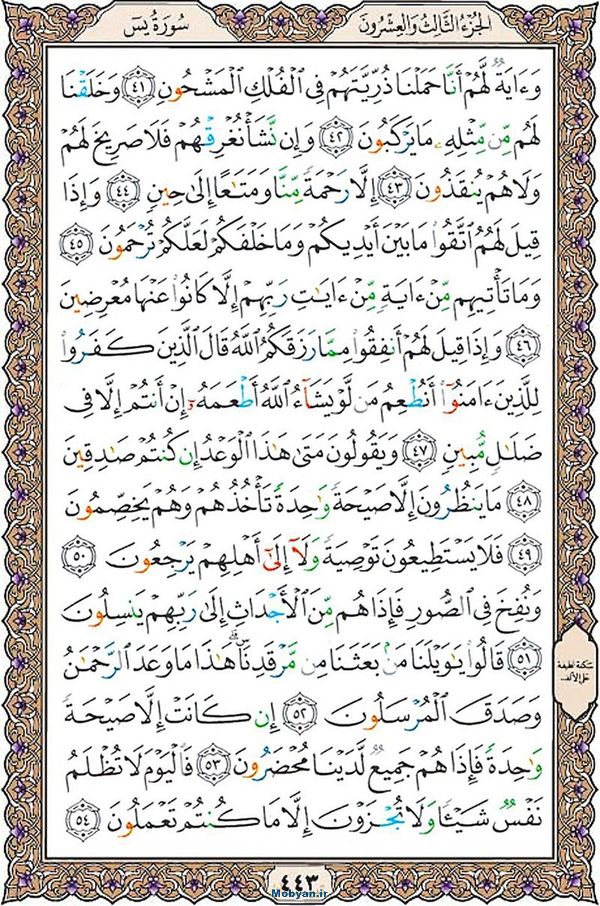 الجُزءُ الثَّالِثُ وَالعِشْرُونَ
سُورَةُ يسٓ
وَءَايَةٌ لَّهُمْ أَنَّا حَمَلْنَا ذُرِّيَّتَهُمْ فِى الْفُلْكِ الْمَشْحُونِ ٤١ وَخَلَقْنَا
لَهُم مِّن مِّثْلِهِۦ مَا يَرْكَبُونَ ٤٢ وَإِن نَّشَأْ نُغْرِقْهُمْ فَلَا صَرِيخَ لَهُمْ
وَلَا هُمْ يُنقَذُونَ ٤٣ إِلَّا رَحْمَةً مِّنَّا وَمَتَٰعًا إِلَىٰ حِينٍ ٤٤ وَإِذَا
قِيلَ لَهُمُ اتَّقُوا۟ مَا بَيْنَ أَيْدِيكُمْ وَمَا خَلْفَكُمْ لَعَلَّكُمْ تُرْحَمُونَ ٤٥
وَمَا تَأْتِيهِم مِّنْ ءَايَةٍ مِّنْ ءَايَٰتِ رَبِّهِمْ إِلَّا كَانُوا۟ عَنْهَا مُعْرِضِينَ
٤٦ وَإِذَا قِيلَ لَهُمْ أَنفِقُوا۟ مِمَّا رَزَقَكُمُ اللَّهُ قَالَ الَّذِينَ كَفَرُوا۟
لِلَّذِينَ ءَامَنُوٓا۟ أَنُطْعِمُ مَن لَّوْ يَشَآءُ اللَّهُ أَطْعَمَهُۥٓ إِنْ أَنتُمْ إِلَّا فِى
ضَلَٰلٍ مُّبِينٍ ٤٧ وَيَقُولُونَ مَتَىٰ هَٰذَا الْوَعْدُ إِن كُنتُمْ صَٰدِقِينَ
٤٨ مَا يَنظُرُونَ إِلَّا صَيْحَةً وَٰحِدَةً تَأْخُذُهُمْ وَهُمْ يَخِصِّمُونَ
٤٩ فَلَا يَسْتَطِيعُونَ تَوْصِيَةً وَلَآ إِلَىٰٓ أَهْلِهِمْ يَرْجِعُونَ ٥٠
وَنُفِخَ فِى الصُّورِ فَإِذَا هُم مِّنَ الْأَجْدَاثِ إِلَىٰ رَبِّهِمْ يَنسِلُونَ
٥١ قَالُوا۟ يَٰوَيْلَنَا مَنۢ بَعَثَنَا مِن مَّرْقَدِنَا ۜ ۗ هَٰذَا مَا وَعَدَ الرَّحْمَٰنُ
وَصَدَقَ الْمُرْسَلُونَ ٥٢ إِن كَانَتْ إِلَّا صَيْحَةً
وَٰحِدَةً فَإِذَا هُمْ جَمِيعٌ لَّدَيْنَا مُحْضَرُونَ ٥٣ فَالْيَوْمَ لَا تُظْلَمُ
نَفْسٌ شَيْـًٔا وَلَا تُجْزَوْنَ إِلَّا مَا كُنتُمْ تَعْمَلُونَ ٥٤
سَكتة لطيفة
على الألف
٤٤٣
Mobyan.ir